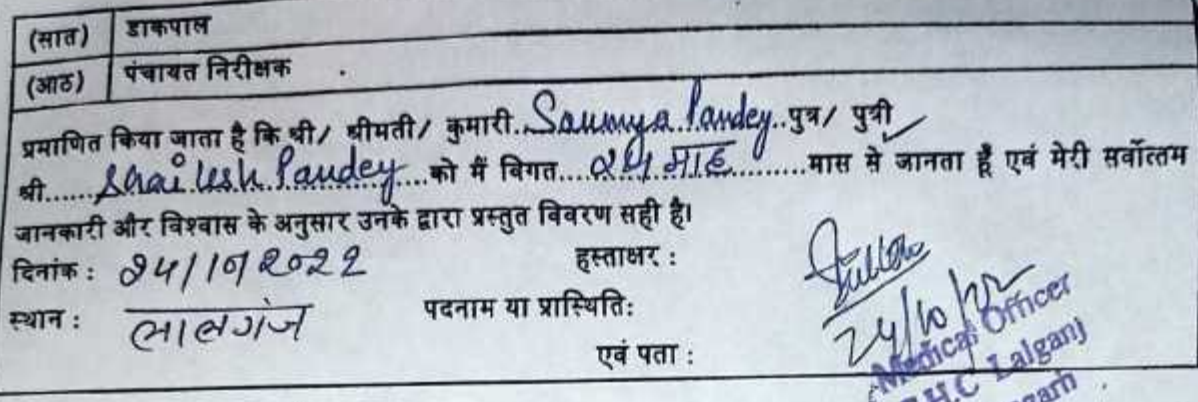 (सात) डाकपाल
(आठ) पंचायत निरीक्षक .
प्रमाणित किया जाता है कि श्री/ श्रीमती/ कुमारी..Saumya Pandey..पुत्र/ पुत्री
श्री......Shailesh Pandey....को मैं विगत....२५ माह.........मास से जानता हूँ एवं मेरी सर्वोत्तम
जानकारी और विश्वास के अनुसार उनके द्वारा प्रस्तुत विवरण सही है।
दिनांक : 24/10/2022 हस्ताक्षर :
24/10/22
स्थान : लालगंज पदनाम या प्रास्थिति:
Medical Officer
एवं पता :
P.H.C Lalganj